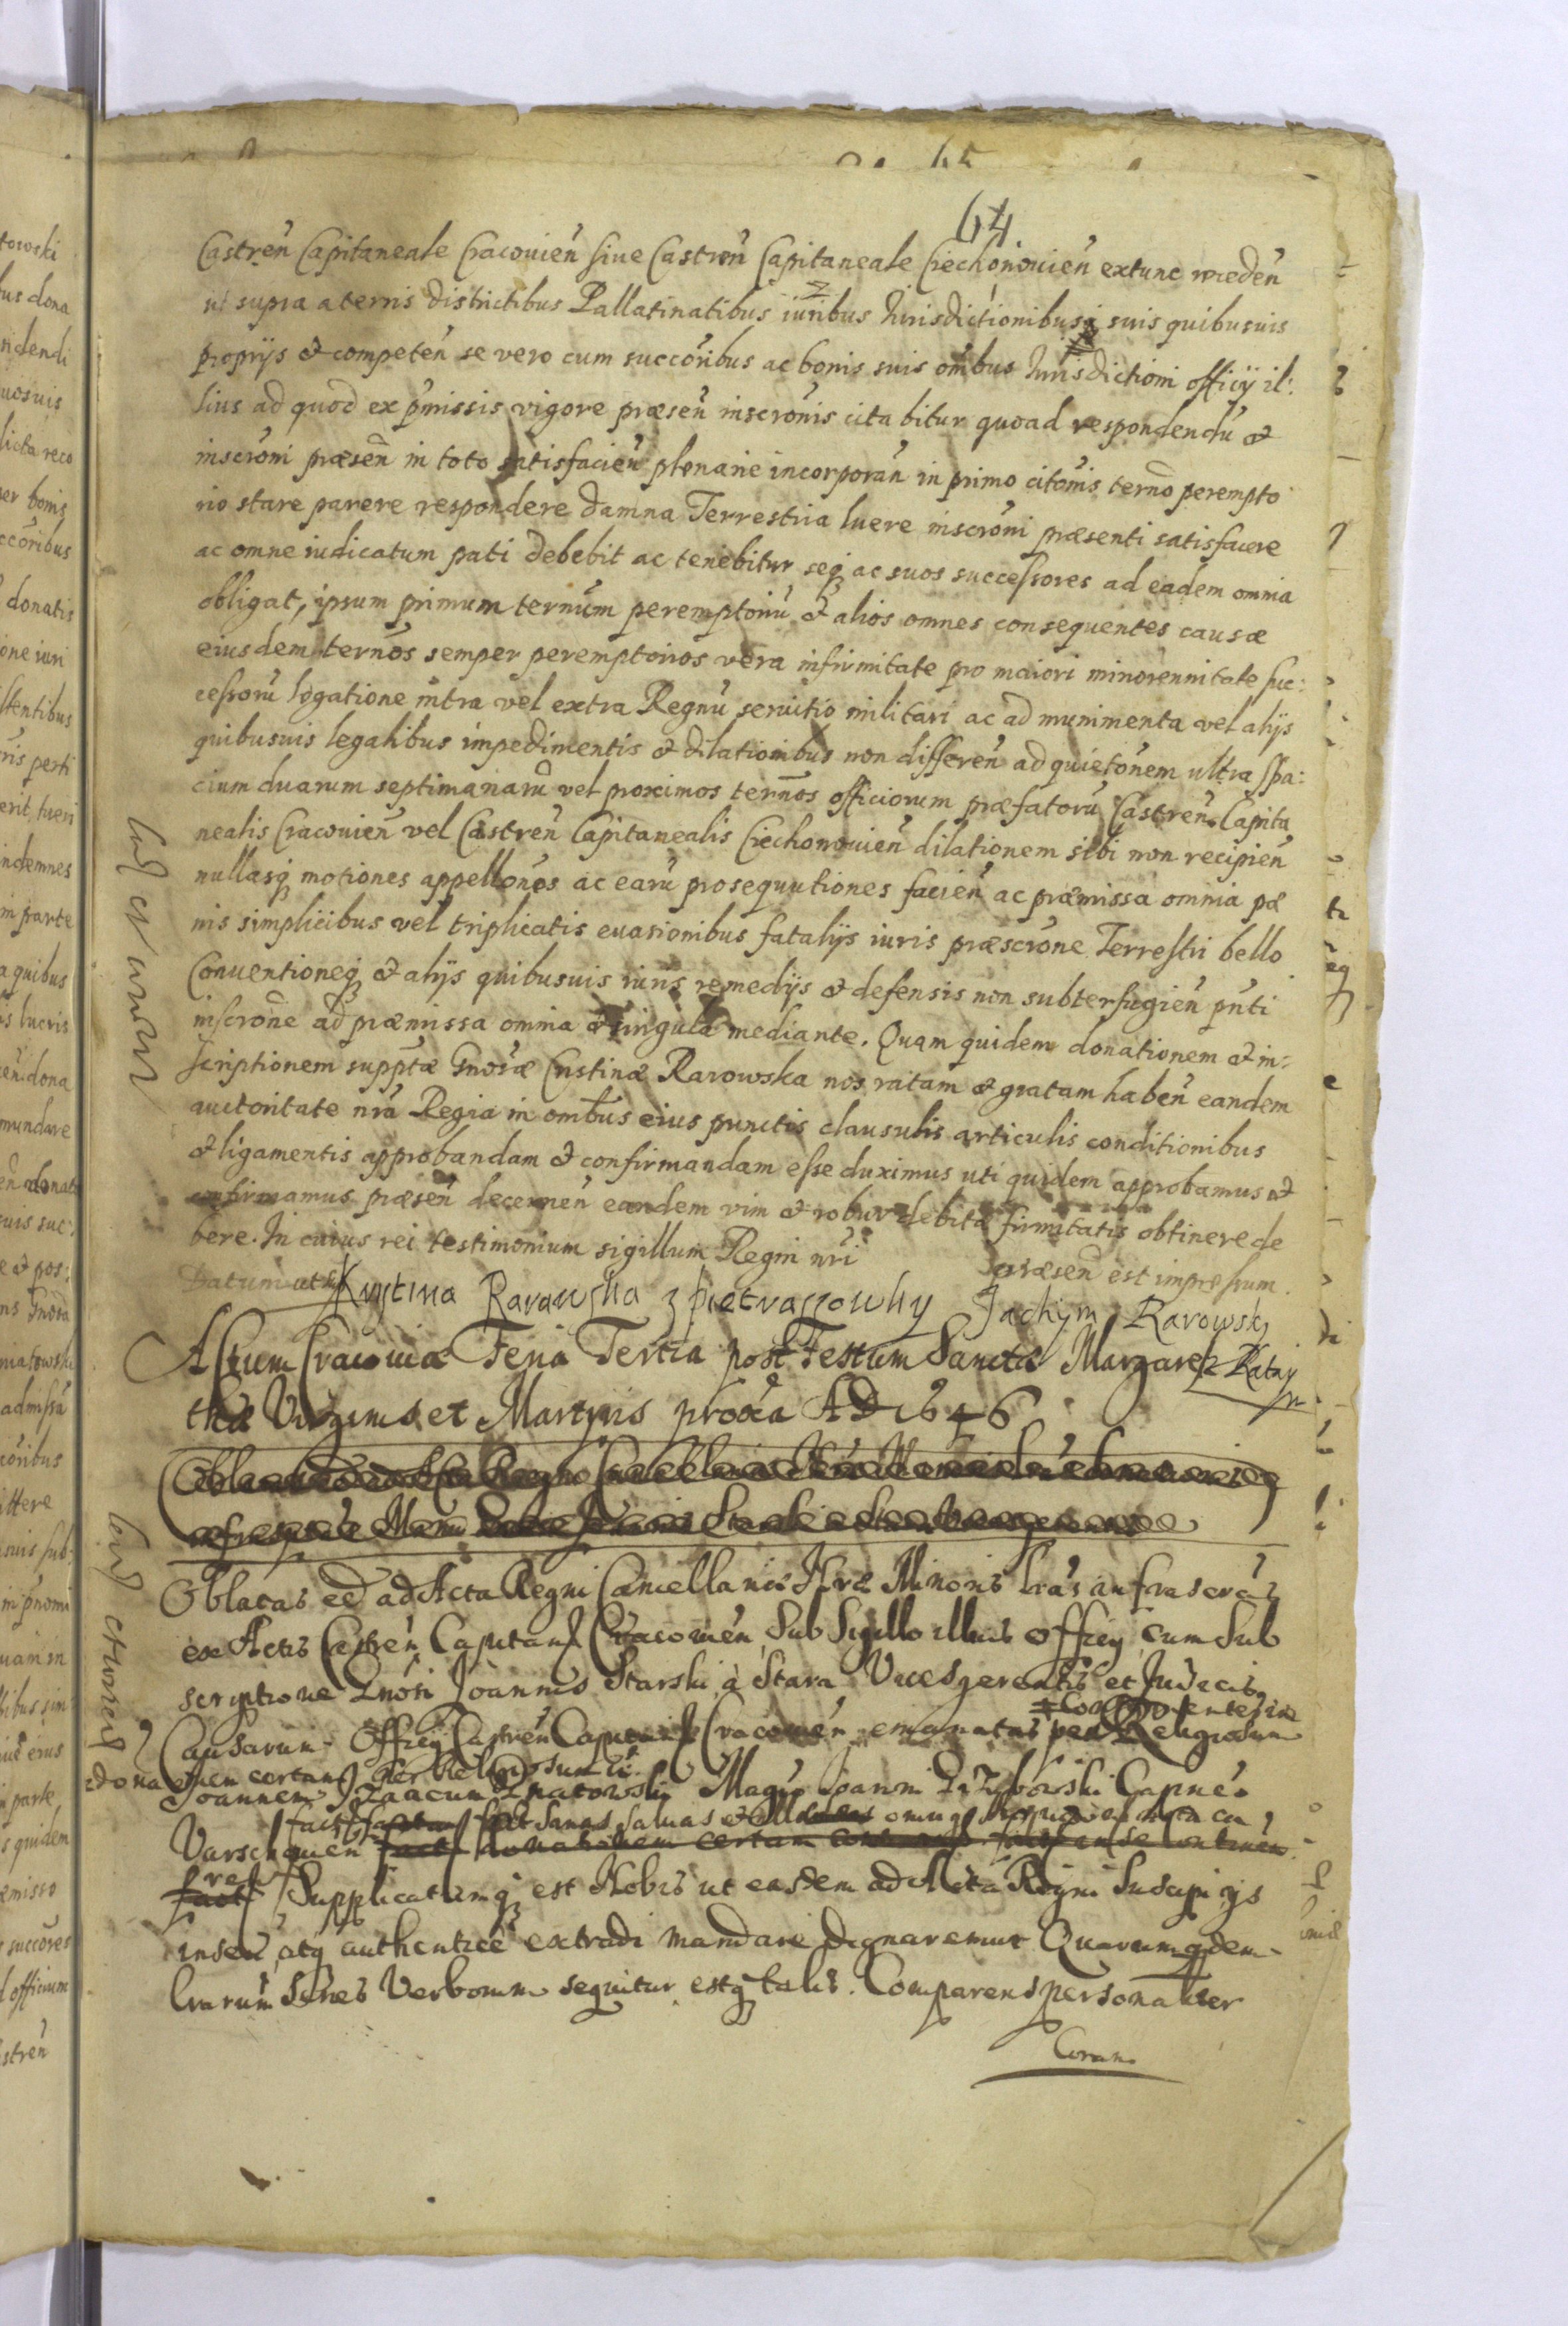 64
Castren̄ Capitaneale Cracouien̄ siue Castren̄ Capitaneale Ciechonouien̄ extunc receden̄
ut supra a terris districtibus Pallatinatibus iuribus Iurisdictionibusq suis quibusuis
proprijs et competen̄ se vero cum succoribus ac bonis suis om̄ibus Iurisdictioni officij il:
lius ad quod ex p̄missis vigore præsen̄ inscrōnis citabitur quoad respondendū et
inscrōni præsen̄ in toto satisfacien̄ plenarie incorporan̄ in primo citōnis tern̄o perempto
rio stare parere respondere damna Terrestria luere inscrōni præsenti satisfacere
ac omne iudicatum pati debebit ac tenebitur seq ac suos successores ad eadem omnia
obligat, ipsum primum ternūm peremptoriū et alios omnes consequentes causæ
eiusdem tern̄os semper peremptorios vera infirmitate pro maiori minorennitate suc:
cessorū legatione intra vel extra Regnū seruitio militari ac ad munimenta vel alijs
quibusuis legalibus impedimentis et dilationibus non differen̄ ad quietōnem ultra spa:
cium duarum septimanarū vel proximos tern̄os officiorum præfatorū Castren̄ Capita
nealis Cracouien̄ vel Castren̄ Capitanealis Ciechonouien̄ dilationem sibi non recipien̄
nullasq motiones appellōnes ac earū prosequutiones facien̄ ac præmissa omnia pœ
nis simplicibus vel triplicatis euasionibus fatalijs iuris præscrōne Terrestri bello
Conuentioneq et alijs quibusuis iuris remedijs et defensis non subterfugien̄ pn̄ti
inscrōne ad præmissa omnia et singula mediante. Quam quidem donationem et in:
scriptionem supp̄tæ Gnōsæ Cristinæ Rarowska nos ratam et gratam haben̄ eandem
auctoritate nr̄a Regia in om̄bus eius punctis clausulis articulis conditionibus
et ligamentis approbandam et confirmandam esse duximus uti quidem approbamus et
confirmamus præsen̄ decernen̄ eandem vim et robur debitæ firmitatis obtinere de
bere. In cuius rei testimonium sigillum Regni nr̄i præsen̄ est impressum.
Datum
Krystina Rarawska z pietraszowky Jachym Rarowsky
z Ratay
Actum Cracouiæ Feria Tertia post Festum Sanctæ Margare
thæ Virginis et Martyris proxīa AD 1646
Oblatas ee ad Acta Regni Cancellariæ Nræ Minoris lrās infrascrās
ex Actis Castren̄ Capitan Cracouien̄, Sub Sigillo illius officij cum Sub
scriptione Gnōsi Joannis Starski à Stara Vicesgerentis et Judicis
Causarum Officij Castren̄ Capitan Cracouien̄ emanatas per Religiosum
Continentes in se
donationem certam per Religiosum
Joannem Izaacum Magco Joanni Capneo
fact sanas saluas et illæsas omniq suspicione
Varschouien̄ fact donationem certam in se continen̄
Supplicatumq est Nobis ut easdem ad Acta Regni Suscipi ijs
inseri, atq authentice extradi mandare dignaremur Quarumqdem
lrarum Series Verborum sequitur estq talis. Comparens personaliter
Coram